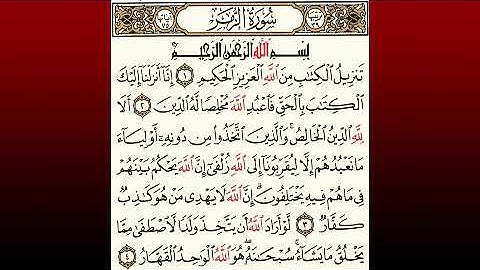 سُورَةُ الزُّمَرِ
بِسْمِ اللَّهِ الرَّحْمَٰنِ الرَّحِيمِ
تَنزِيلُ الْكِتَابِ مِنَ اللَّهِ الْعَزِيزِ الْحَكِيمِ ١ إِنَّا أَنزَلْنَا إِلَيْكَ
الْكِتَابَ بِالْحَقِّ فَاعْبُدِ اللَّهَ مُخْلِصًا لَّهُ الدِّينَ ٢ أَلَا
لِلَّهِ الدِّينُ الْخَالِصُ ۚ وَالَّذِينَ اتَّخَذُوا مِن دُونِهِ أَوْلِيَاءَ
مَا نَعْبُدُهُمْ إِلَّا لِيُقَرِّبُونَا إِلَى اللَّهِ زُلْفَىٰ إِنَّ اللَّهَ يَحْكُمُ بَيْنَهُمْ
فِي مَا هُمْ فِيهِ يَخْتَلِفُونَ ۗ إِنَّ اللَّهَ لَا يَهْدِي مَنْ هُوَ كَاذِبٌ
كَفَّارٌ ٣ لَّوْ أَرَادَ اللَّهُ أَن يَتَّخِذَ وَلَدًا لَّاصْطَفَىٰ مِمَّا
يَخْلُقُ مَا يَشَاءُ ۚ سُبْحَانَهُ ۖ هُوَ اللَّهُ الْوَاحِدُ الْقَهَّارُ ٤